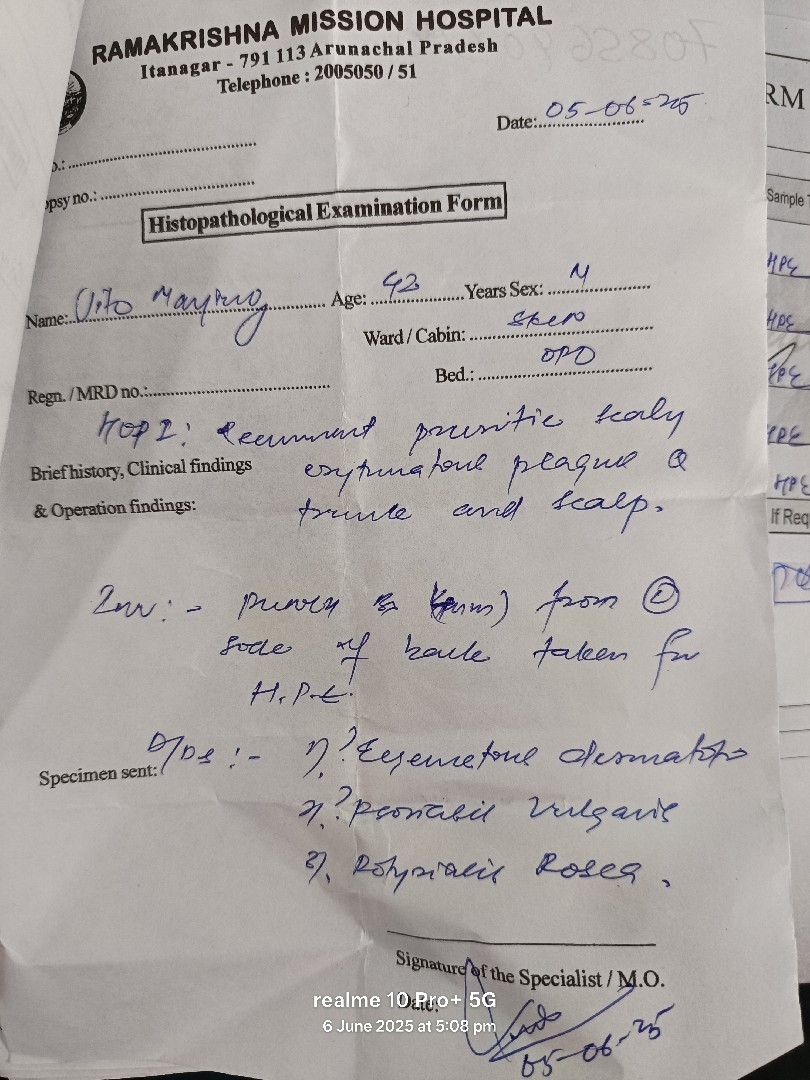 RAMAKRISHNA MISSION HOSPITAL
Itanagar - 791 113 Arunachal Pradesh
Telephone : 2005050 / 51
Date: 05-06-25
opsy no.:
Histopathological Examination Form
Name: Age: 42 Years Sex: M
Ward / Cabin: Skin
Bed.: OPD
Regn. / MRD no.:
HOPI: Recurrent pruritic scaly
Brief history, Clinical findings erythmatous plaque @
& Operation findings: trunk and scalp.
Inv :- punch from
side of back taken for
H.P.E.
D/Ds :- 1) ? Eczematous dermatitis
Specimen sent:
2) ? Psoriasis Vulgaris
3) Pityriasis Rosea.
Signature of the Specialist / M.O.
Date:
05-06-25
realme 10 Pro+ 5G
6 June 2025 at 5:08 pm
RM
Sample T
HPE
HPE
HPE
HPE
HPE
If Req